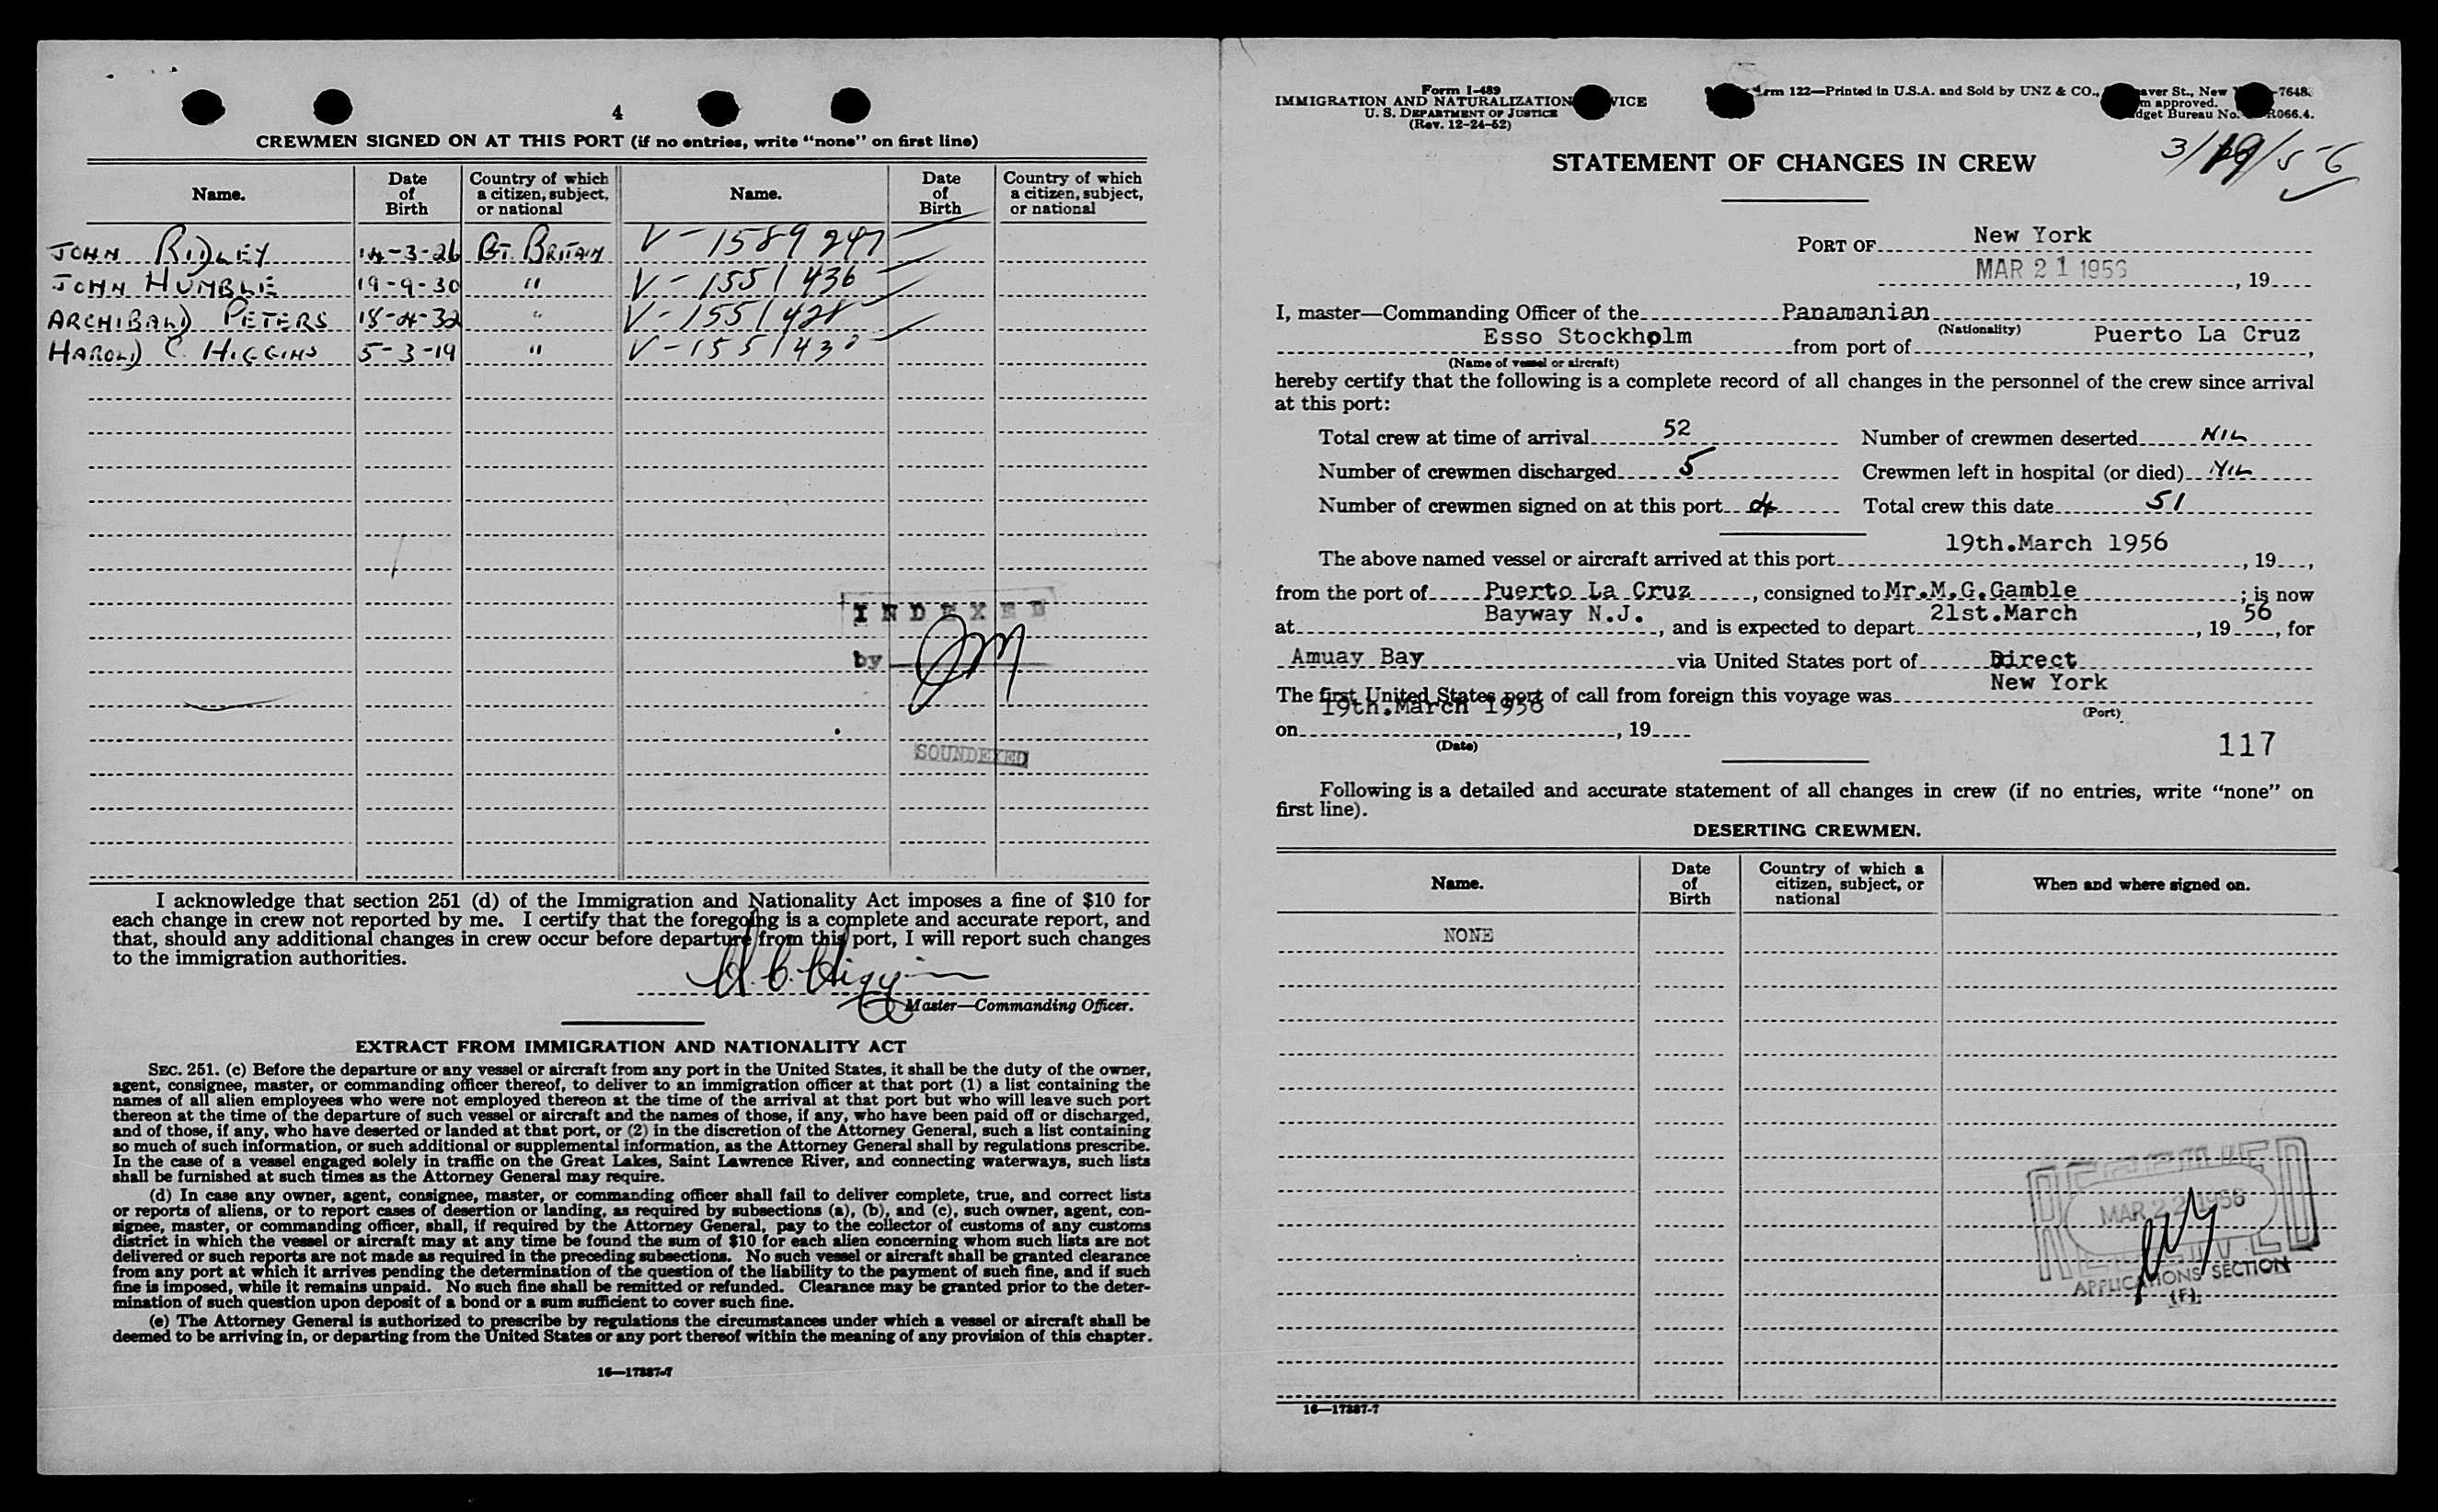 4
CREWMEN SIGNED ON AT THIS PORT (if no entries, write “none” on first line)
Name. Date of Birth Country of which a citizen, subject, or national Name. Date of Birth Country of which a citizen, subject, or national
JOHN RIDLEY 14-3-26 GT. BRITAIN V-1589247
JOHN HUMBLE 19-9-30 " V-1551436
ARCHIBALD PETERS 18-4-32 " V-1551428
HAROLD C. HIGGINS 5-3-19 " V-155143
INDEXED
by
SOUNDEXED
I acknowledge that section 251 (d) of the Immigration and Nationality Act imposes a fine of $10 for
each change in crew not reported by me. I certify that the foregoing is a complete and accurate report, and
that, should any additional changes in crew occur before departure from this port, I will report such changes
to the immigration authorities.
H. C. Higgins
Master—Commanding Officer.
EXTRACT FROM IMMIGRATION AND NATIONALITY ACT
SEC. 251. (c) Before the departure or any vessel or aircraft from any port in the United States, it shall be the duty of the owner,
agent, consignee, master, or commanding officer thereof, to deliver to an immigration officer at that port (1) a list containing the
names of all alien employees who were not employed thereon at the time of the arrival at that port but who will leave such port
thereon at the time of the departure of such vessel or aircraft and the names of those, if any, who have been paid off or discharged,
and of those, if any, who have deserted or landed at that port, or (2) in the discretion of the Attorney General, such a list containing
so much of such information, or such additional or supplemental information, as the Attorney General shall by regulations prescribe.
In the case of a vessel engaged solely in traffic on the Great Lakes, Saint Lawrence River, and connecting waterways, such lists
shall be furnished at such times as the Attorney General may require.
(d) In case any owner, agent, consignee, master, or commanding officer shall fail to deliver complete, true, and correct lists
or reports of aliens, or to report cases of desertion or landing, as required by subsections (a), (b), and (c), such owner, agent, con-
signee, master, or commanding officer, shall, if required by the Attorney General, pay to the collector of customs of any customs
district in which the vessel or aircraft may at any time be found the sum of $10 for each alien concerning whom such lists are not
delivered or such reports are not made as required in the preceding subsections. No such vessel or aircraft shall be granted clearance
from any port at which it arrives pending the determination of the question of the liability to the payment of such fine, and if such
fine is imposed, while it remains unpaid. No such fine shall be remitted or refunded. Clearance may be granted prior to the deter-
mination of such question upon deposit of a bond or a sum sufficient to cover such fine.
(e) The Attorney General is authorized to prescribe by regulations the circumstances under which a vessel or aircraft shall be
deemed to be arriving in, or departing from the United States or any port thereof within the meaning of any provision of this chapter.
16—17387-7
Form I-489
IMMIGRATION AND NATURALIZATION VICE
U. S. DEPARTMENT OF JUSTICE
(Rev. 12-24-52)
rm 122—Printed in U.S.A. and Sold by UNZ & CO., aver St., New -7648.
m approved.
dget Bureau No. R066.4.
3/19/56
STATEMENT OF CHANGES IN CREW
PORT OF New York
MAR 21 1956, 19
I, master—Commanding Officer of the Panamanian
(Nationality)
Esso Stockholm from port of Puerto La Cruz,
(Name of vessel or aircraft)
hereby certify that the following is a complete record of all changes in the personnel of the crew since arrival
at this port:
Total crew at time of arrival 52 Number of crewmen deserted NIL
Number of crewmen discharged 5 Crewmen left in hospital (or died) NIL
Number of crewmen signed on at this port 4 Total crew this date 51
The above named vessel or aircraft arrived at this port 19th.March 1956, 19,
from the port of Puerto La Cruz, consigned to Mr.M.G.Gamble; is now
at Bayway N.J., and is expected to depart 21st.March, 19 56, for
Amuay Bay via United States port of Direct
The first United States port of call from foreign this voyage was New York
(Port)
on 19th.March 1956, 19
(Date)
117
Following is a detailed and accurate statement of all changes in crew (if no entries, write “none” on
first line).
DESERTING CREWMEN.
Name. Date of Birth Country of which a citizen, subject, or national When and where signed on.
NONE
RECEIVED
MAR 22 1956
RECEIVED
APPLICATIONS SECTION
(F)
16—17387-7